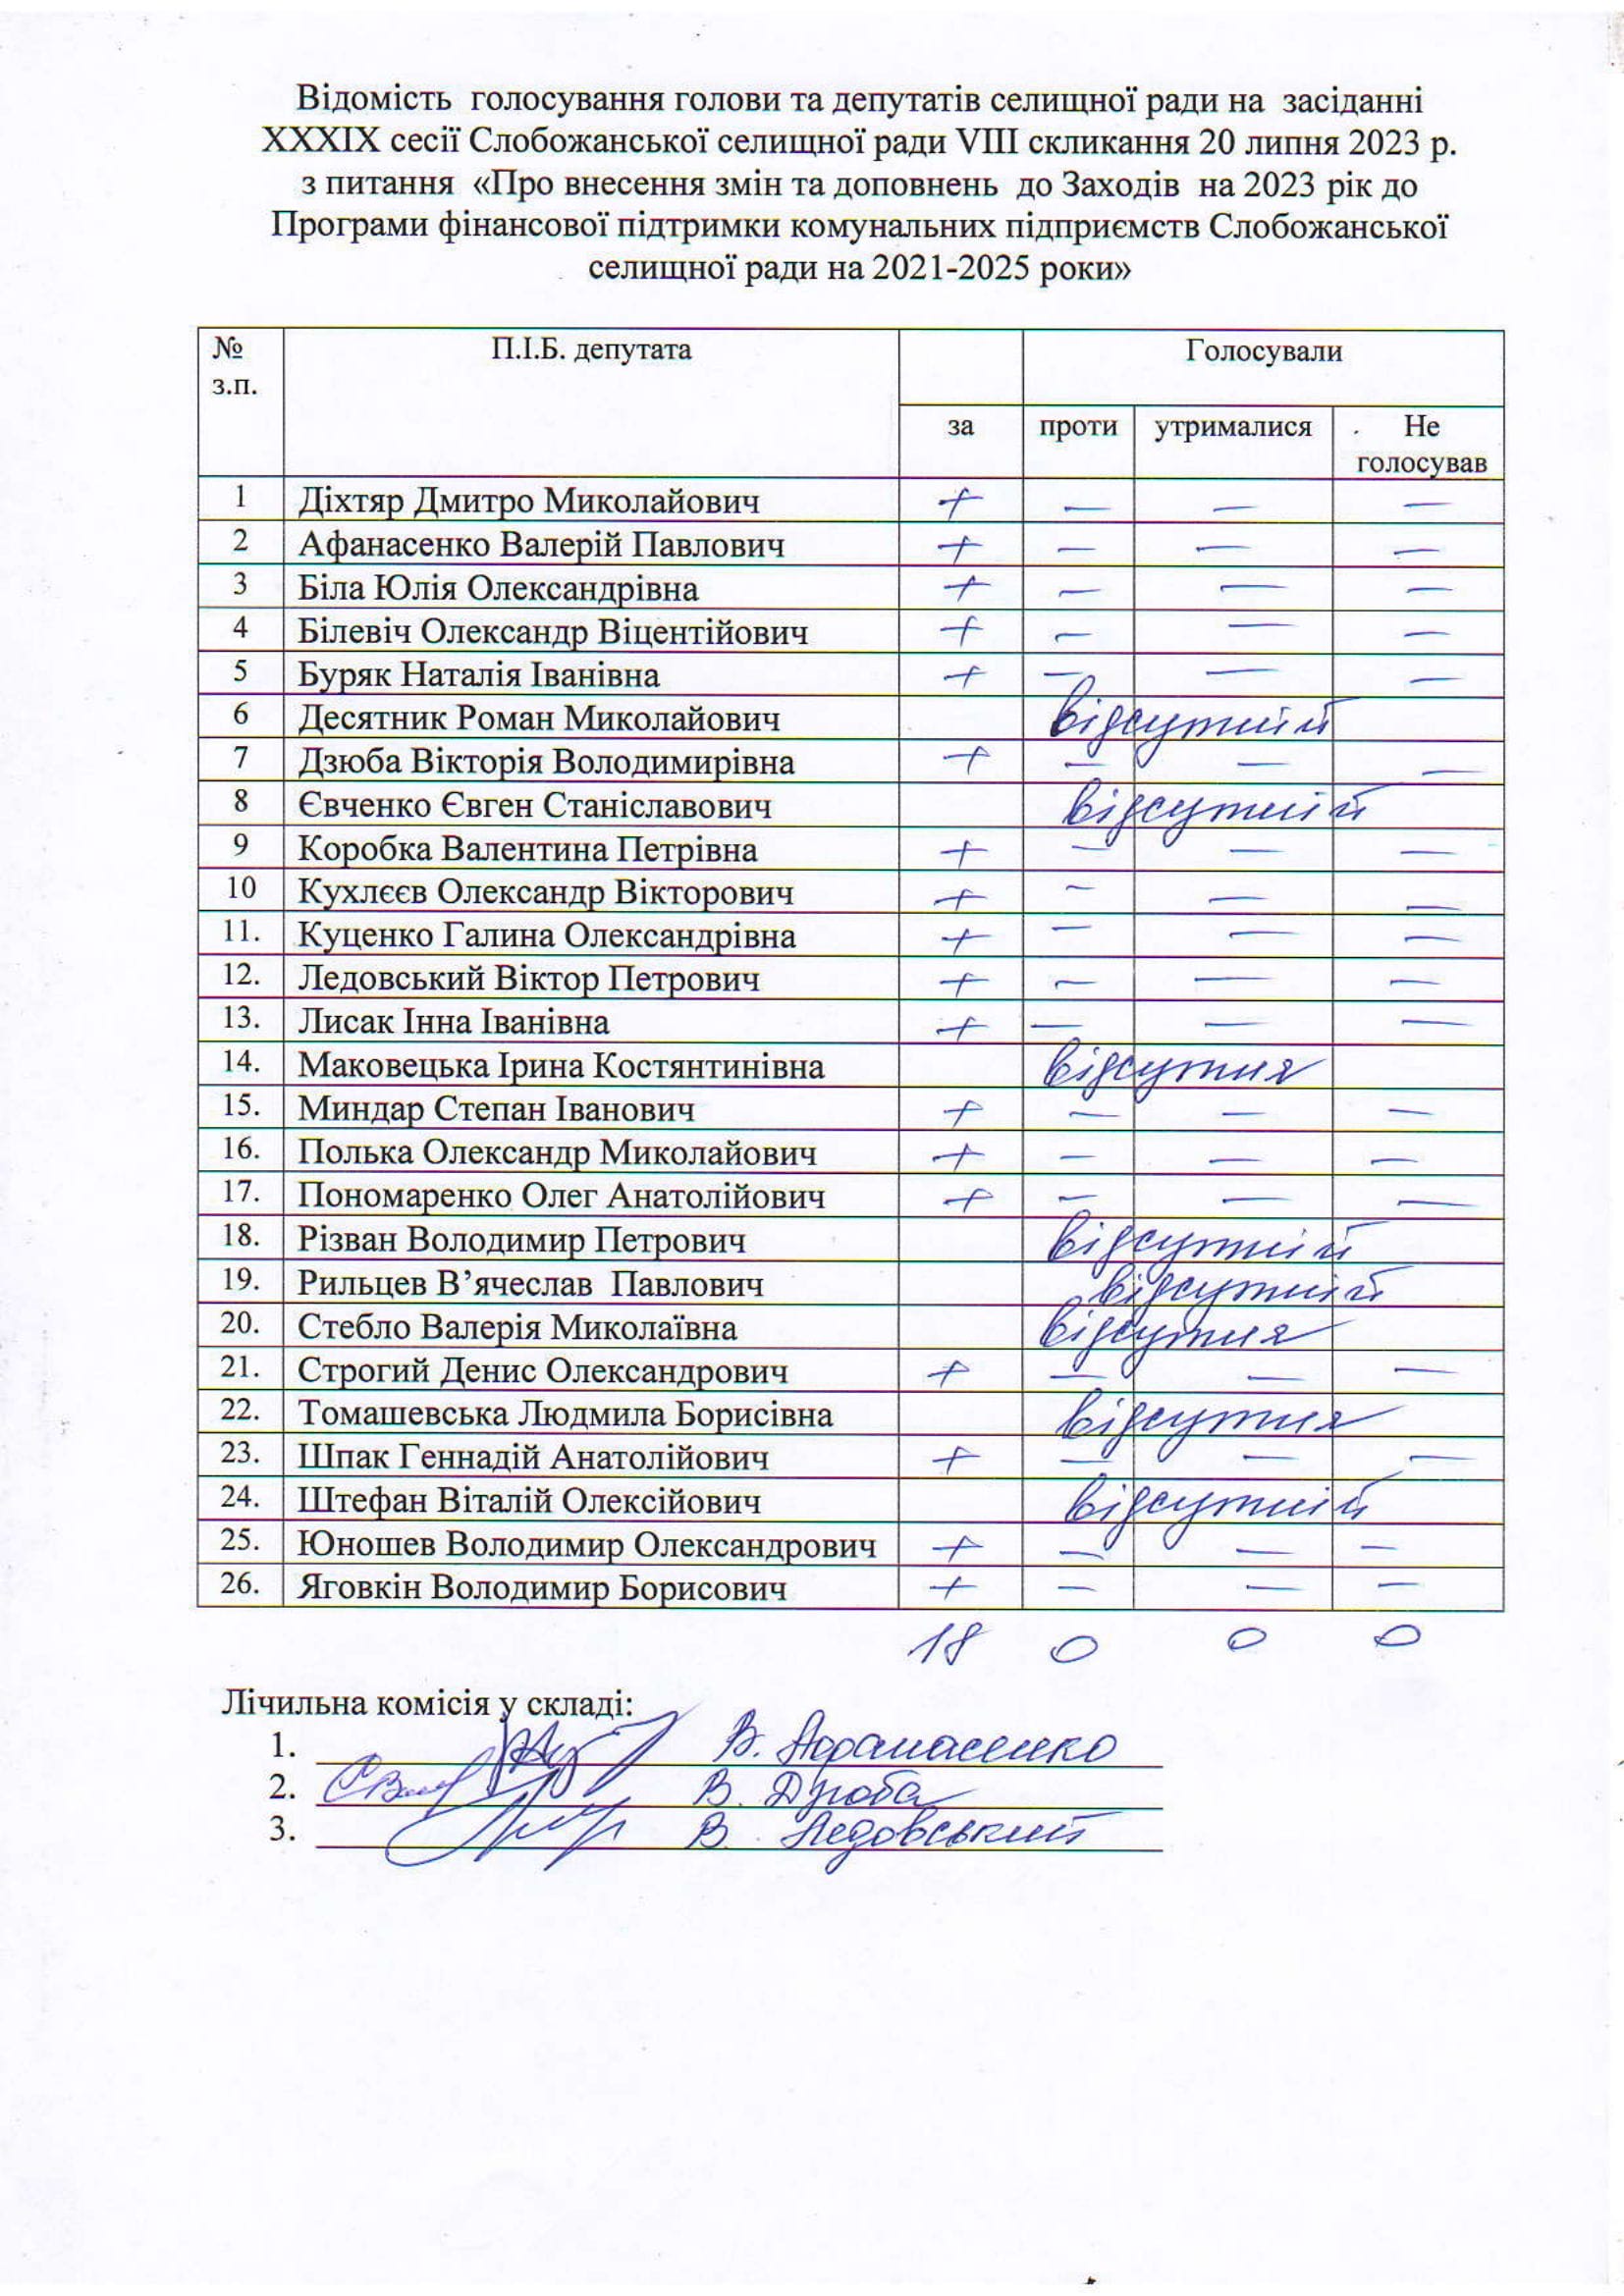 Відомість голосування голови та депутатів селищної ради на засіданні
XXXIX сесії Слобожанської селищної ради VIII скликання 20 липня 2023 р.
з питання «Про внесення змін та доповнень до Заходів на 2023 рік до
Програми фінансової підтримки комунальних підприємств Слобожанської
селищної ради на 2021-2025 роки»
№ з.п. П.І.Б. депутата Голосували
за проти утрималися Не голосував
1 Діхтяр Дмитро Миколайович + — — —
2 Афанасенко Валерій Павлович + — — —
3 Біла Юлія Олександрівна + — — —
4 Білевіч Олександр Віцентійович + — — —
5 Буряк Наталія Іванівна + — — —
6 Десятник Роман Миколайович відсутній
7 Дзюба Вікторія Володимирівна + — — —
8 Євченко Євген Станіславович відсутній
9 Коробка Валентина Петрівна + — — —
10 Кухлєєв Олександр Вікторович + — — —
11. Куценко Галина Олександрівна + — — —
12. Ледовський Віктор Петрович + — — —
13. Лисак Інна Іванівна + — — —
14. Маковецька Ірина Костянтинівна відсутня
15. Миндар Степан Іванович + — — —
16. Полька Олександр Миколайович + — — —
17. Пономаренко Олег Анатолійович + — — —
18. Різван Володимир Петрович відсутній
19. Рильцев В’ячеслав Павлович відсутній
20. Стебло Валерія Миколаївна відсутня
21. Строгий Денис Олександрович + — — —
22. Томашевська Людмила Борисівна відсутня
23. Шпак Геннадій Анатолійович + — — —
24. Штефан Віталій Олексійович відсутній
25. Юношев Володимир Олександрович + — — —
26. Яговкін Володимир Борисович + — — —
18 0 0 0
Лічильна комісія у складі:
1. В. Афанасенко
2. В. Дзюба
3. В. Ледовський